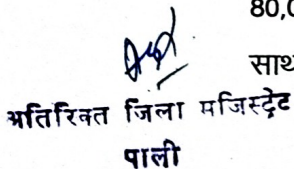 80,0
साथ
अतिरिक्त जिला मजिस्ट्रेट
पाली